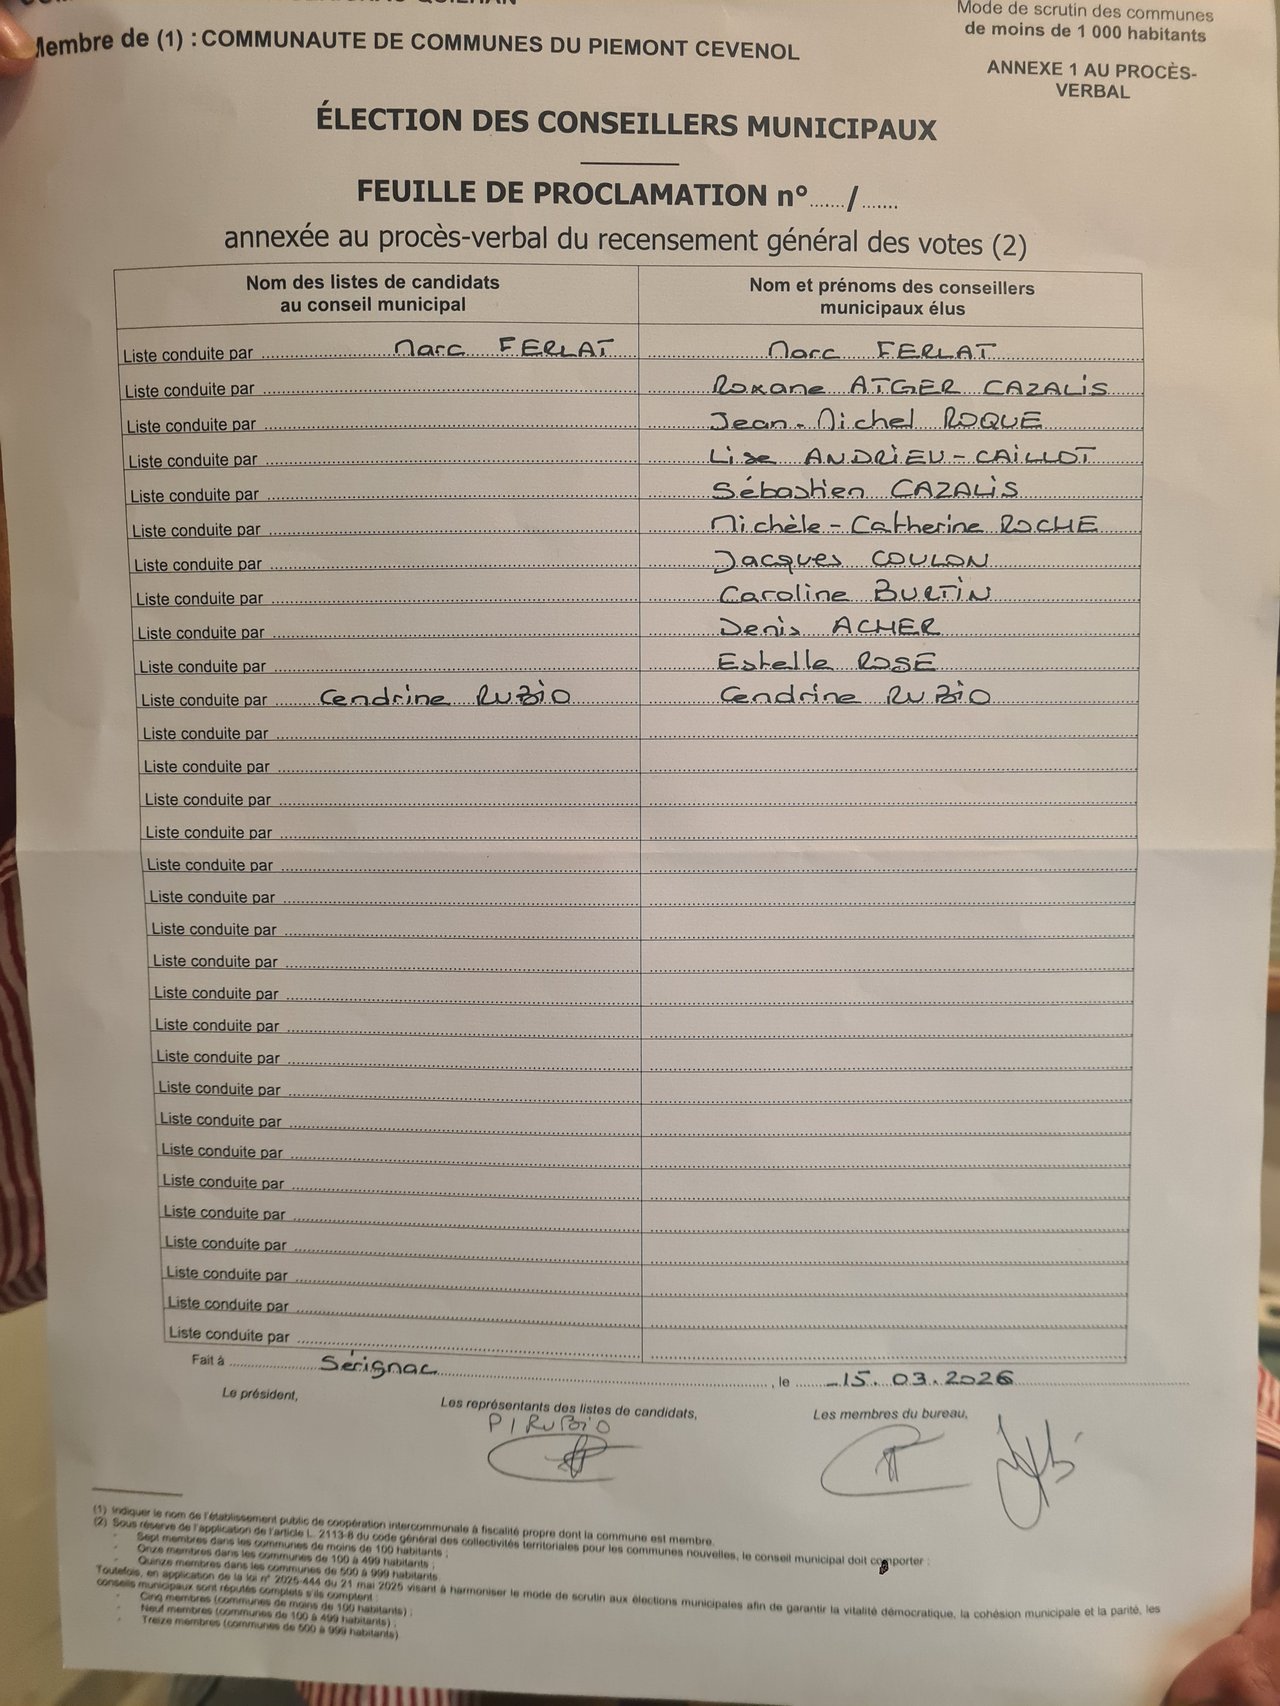 QUILHAN
Membre de (1) : COMMUNAUTE DE COMMUNES DU PIEMONT CEVENOL
Mode de scrutin des communes
de moins de 1 000 habitants
ANNEXE 1 AU PROCÈS-
VERBAL
ÉLECTION DES CONSEILLERS MUNICIPAUX
FEUILLE DE PROCLAMATION n°....../.......
annexée au procès-verbal du recensement général des votes (2)
Nom des listes de candidats
au conseil municipal
Nom et prénoms des conseillers
municipaux élus
Liste conduite par Marc FERLAT Marc FERLAT
Liste conduite par Roxane ATGER CAZALIS
Liste conduite par Jean-Michel ROQUE
Liste conduite par Lise ANDRIEU-CAILLOT
Liste conduite par Sébastien CAZALIS
Liste conduite par Michèle-Catherine ROCHE
Liste conduite par Jacques COULON
Liste conduite par Caroline BURTIN
Liste conduite par Denis ACHER
Liste conduite par Estelle ROSE
Liste conduite par Cendrine RUBIO Cendrine RUBIO
Liste conduite par
Liste conduite par
Liste conduite par
Liste conduite par
Liste conduite par
Liste conduite par
Liste conduite par
Liste conduite par
Liste conduite par
Liste conduite par
Liste conduite par
Liste conduite par
Liste conduite par
Liste conduite par
Liste conduite par
Liste conduite par
Liste conduite par
Liste conduite par
Liste conduite par
Liste conduite par
Fait à Sérignac, le 15.03.2026
Le président,
Les représentants des listes de candidats,
Les membres du bureau,
P/RUBIO
(1) Indiquer le nom de l'établissement public de coopération intercommunale à fiscalité propre dont la commune est membre.
(2) Sous réserve de l'application de l'article L. 2113-8 du code général des collectivités territoriales pour les communes nouvelles, le conseil municipal doit comporter :
- Sept membres dans les communes de moins de 100 habitants ;
- Onze membres dans les communes de 100 à 499 habitants ;
- Quinze membres dans les communes de 500 à 999 habitants.
Toutefois, en application de la loi n° 2025-444 du 21 mai 2025 visant à harmoniser le mode de scrutin aux élections municipales afin de garantir la vitalité démocratique, la cohésion municipale et la parité, les
conseils municipaux sont réputés complets s'ils comptent :
- Cinq membres (communes de moins de 100 habitants) ;
- Neuf membres (communes de 100 à 499 habitants) ;
- Treize membres (communes de 500 à 999 habitants)